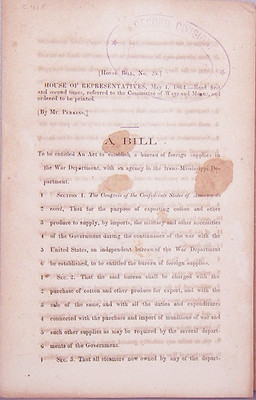 RECORD DIVISION
[House Bill, No.
HOUSE OF REPRESENTATIVES, May 4, 1864.—Read first
and second times, referred to the Committee of Ways and Means, and
ordered to be printed.
[By Mr. Perkins.]
A BILL
To be entitled An Act to establish a bureau of foreign supplies in
the War Department, with an agency in the Trans-Mississippi De-
partment.
1 Section 1. The Congress of the Confederate States of America do
2 enact, That for the purpose of exporting cotton and other
3 produce to supply, by imports, the military and other necessities
4 of the Government during the continuance of the war with the
5 United States, an independent bureau of the War Department
6 be established, to be entitled the bureau of foreign supplies.
1 Sec. 2. That the said bureau shall be charged with the
2 purchase of cotton and other produce for export, and with the
3 sale of the same, and with all the duties and expenditures
4 connected with the purchase and import of munitions of war and
5 such other supplies as may be required by the several depart-
6 ments of the Government.
1 Sec. 3. That all steamers now owned by any of the depart-